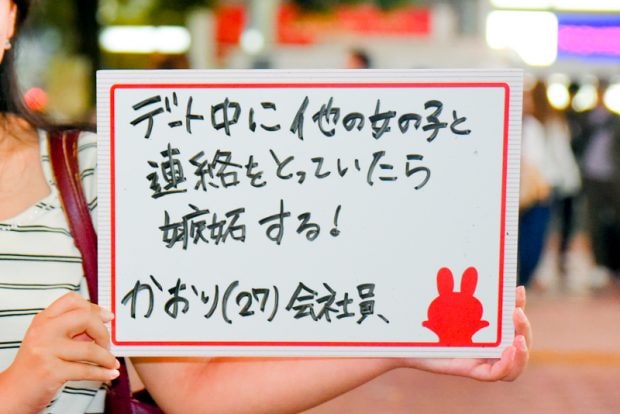 デート中に他の女の子と
連絡をとっていたら
嫉妬する!
かおり(27)会社員